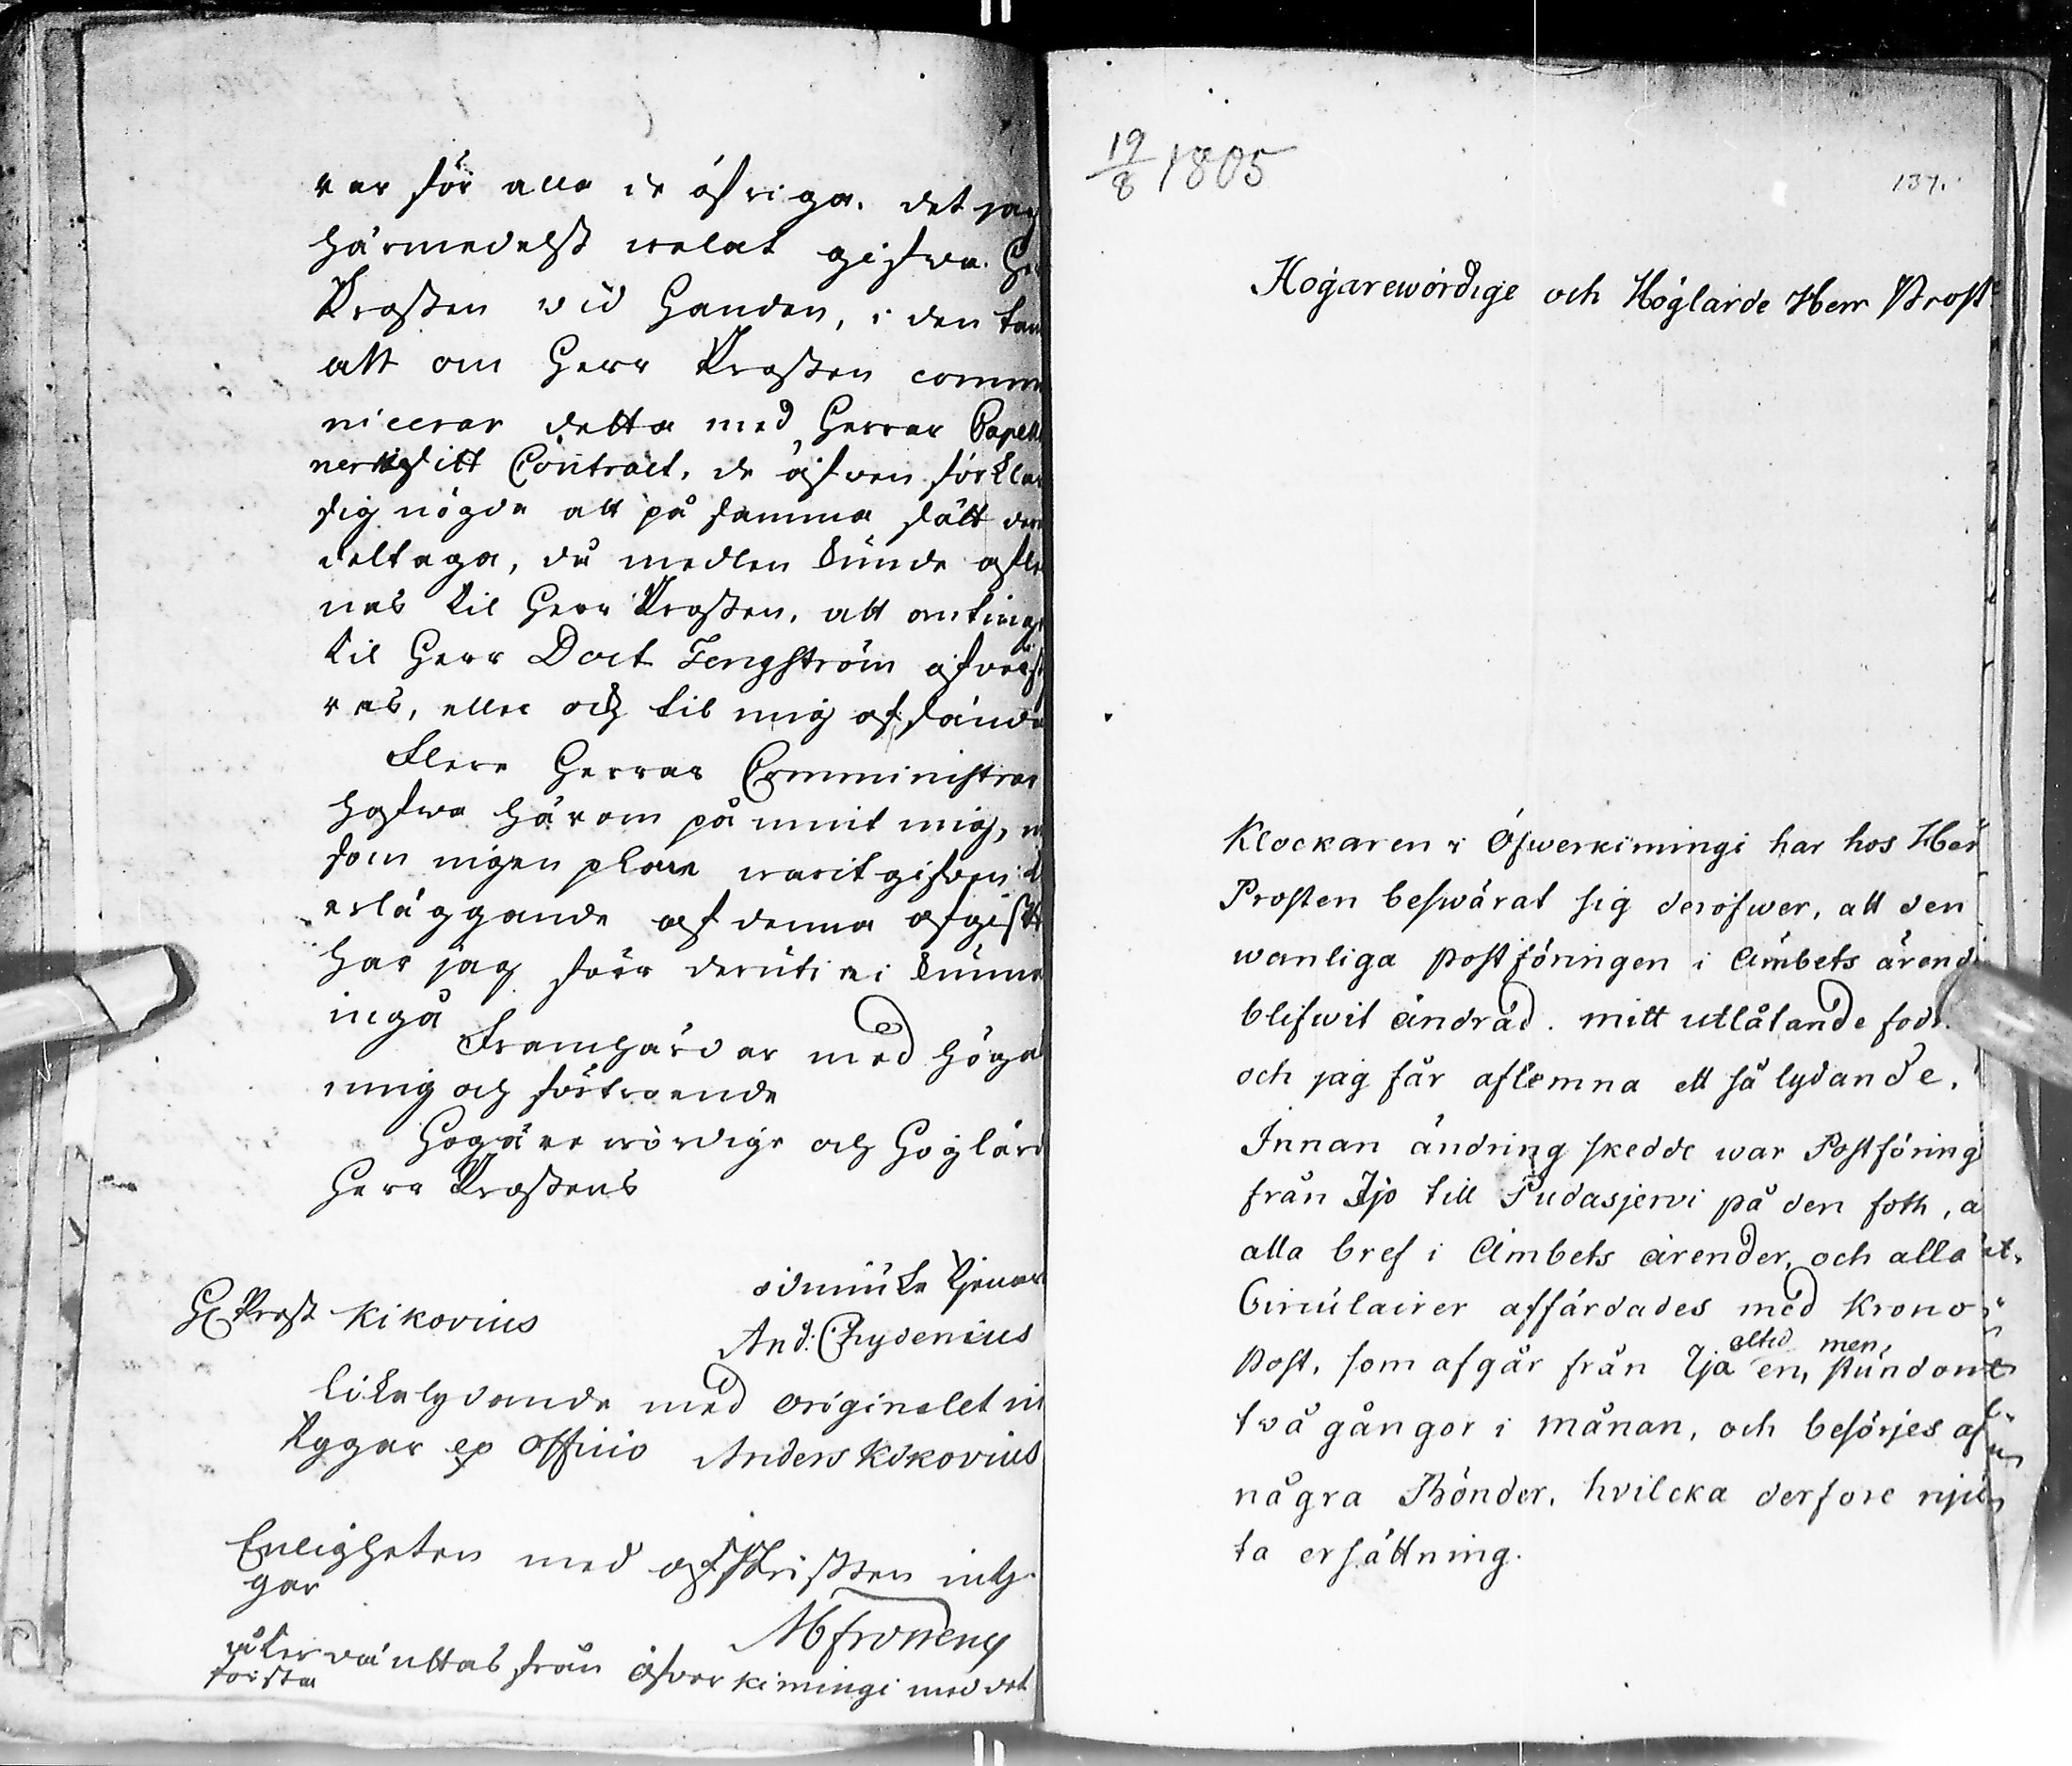 rar för alla de öfriga. det jag
härmedelst welat gifwa Her
Prosten vid Handen, i den tan
att om Herr Prosten comm
nicerar detta med Herrar Capell
ner i sitt Contract, de äfwen förkla
sig nögda att på samma sätt der
deltaga, då medlen kunde afle
nas til Herr Prosten, att antinge
til Herr Doct Tengström öfver
ras, eller och til mig afsända
Flere Herrar Comministrar
hafwa härom påmint mig, 
som ingen plan warit gifven 
erläggande af denna afgift
har jag förr deruti ei kunna
ingå
Framhärdar med höga
ning och förtroende
Högärewördige och Höglärd
Herr Prostens
ödmjuke tjenare
And: Chydenius
H Prost Kikovius
Likalydande med originalet in
tygar ex officio Anders Kikovius
Enligheten med afskriften inty
gar
M Froneny
återväntas från öfverkimingi med det
första
19/8 1805
137.
Högärewördige och Höglärde Herr Prost
Klockaren i Öfwerkimingi har hos Her
Prosten beswärat sig deröfwer, att den
wanliga postföringen i Ämbets ärend
blifwit ändrad. mitt utlåtande fodr
och jag får aflemna ett så lydande.
Innan ändring skedde war Postföring
från Ijo till Pudasjerwi på den foth, a
alla bref i Ämbets ärender, och alla
Circulairer affärdades med Krono
Post, som afgår från Ija altid en, men stundom
två gångor i månan, och besörjes af
några Bönder, hvilcka derfore nju
ta ersättning.